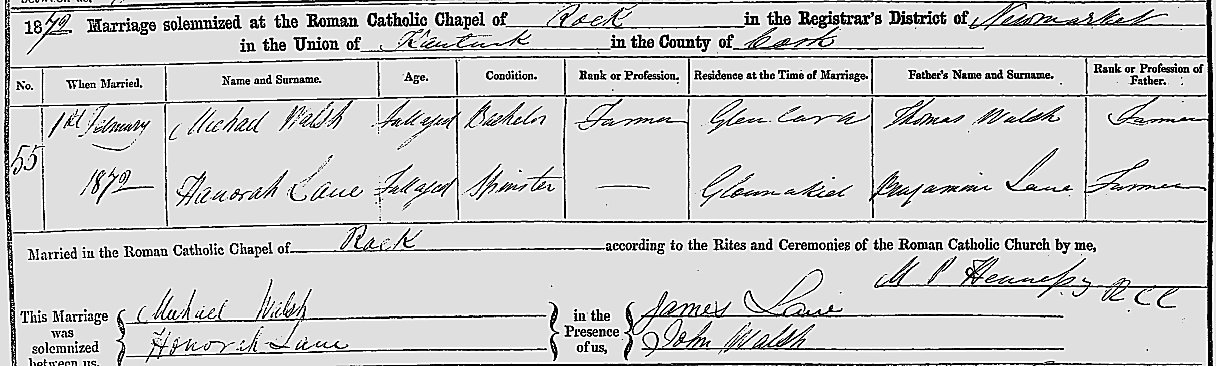 1872. Marriage solemnized at the Roman Catholic Chapel of Rock in the Registrar's District of Newmarket
in the Union of Kanturk in the County of Cork
No. When Married. Name and Surname. Age. Condition. Rank or Profession. Residence at the Time of Marriage. Father's Name and Surname. Rank or Profession of Father.
55 1st February Michael Walsh Full aged Bachelor Farmer Glen Cara Thomas Walsh Farmer
1872 Hanorah Lane Full aged Spinster — Glounakiel Benjamin Lane Farmer
Married in the Roman Catholic Chapel of Rock according to the Rites and Ceremonies of the Roman Catholic Church by me,
M P Hennessy R C C
This Marriage was solemnized between us, Michael Walsh in the Presence of us, James Lane
Honorah Lane John Walsh